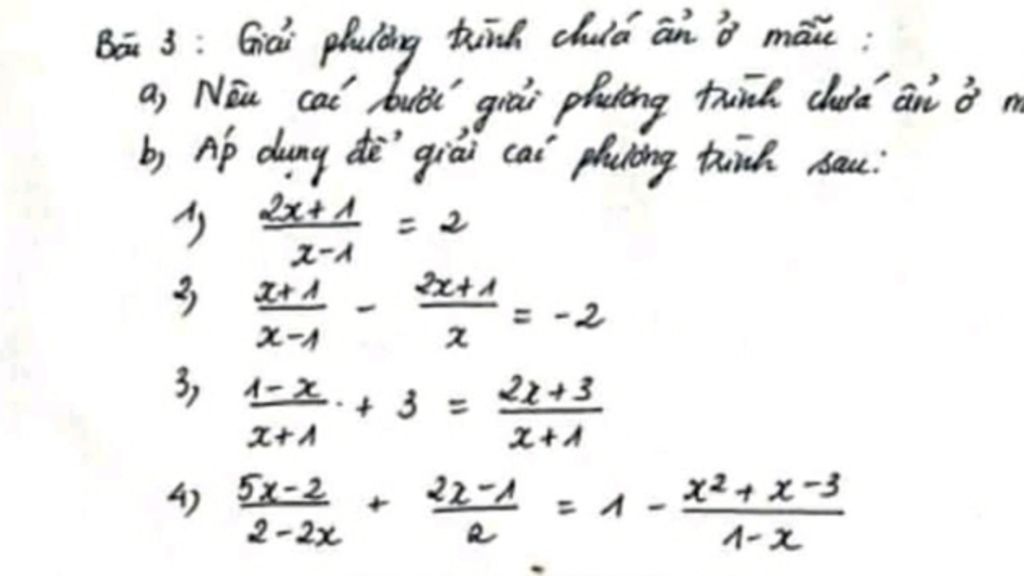 Bài 3 : Giải phương trình chứa ẩn ở mẫu :
a, Nêu các bước giải phương trình chứa ẩn ở m
b, Áp dụng để giải các phương trình sau:
1) (2x+1)/(x-1) = 2
2) (x+1)/(x-1) - (2x+1)/x = -2
3) (1-x)/(x+1) + 3 = (2x+3)/(x+1)
4) (5x-2)/(2-2x) + (2x-1)/2 = 1 - (x²+x-3)/(1-x)